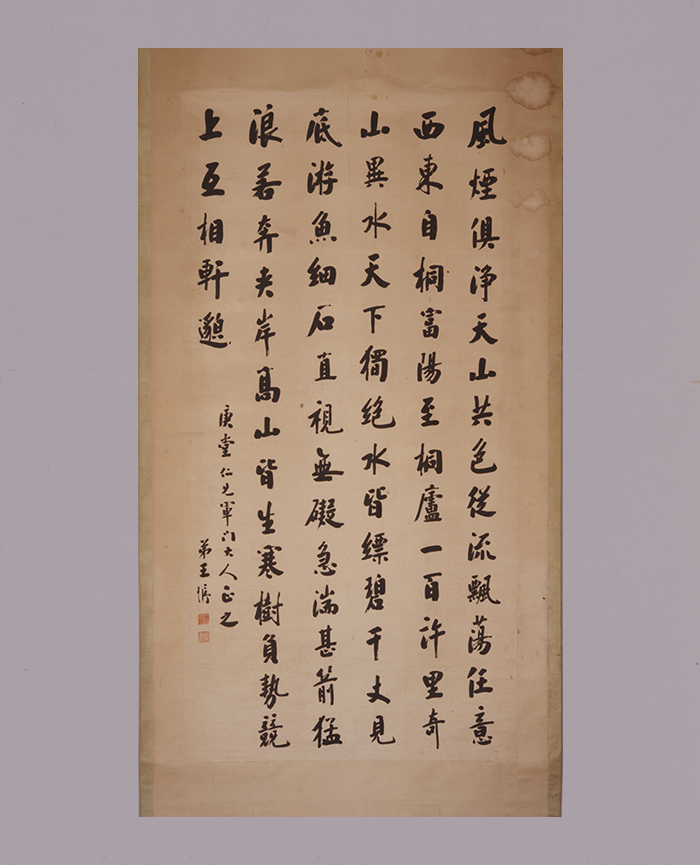 風煙俱淨天山共色從流飄蕩任意
西東自桐富陽至桐廬一百許里奇
山異水天下獨絕水皆縹碧千丈見
底游魚細石直視無礙急湍甚箭猛
浪若奔夾岸高山皆生寒樹負勢競
上互相軒邈
庚堂仁兄軍門大人正之
弟王